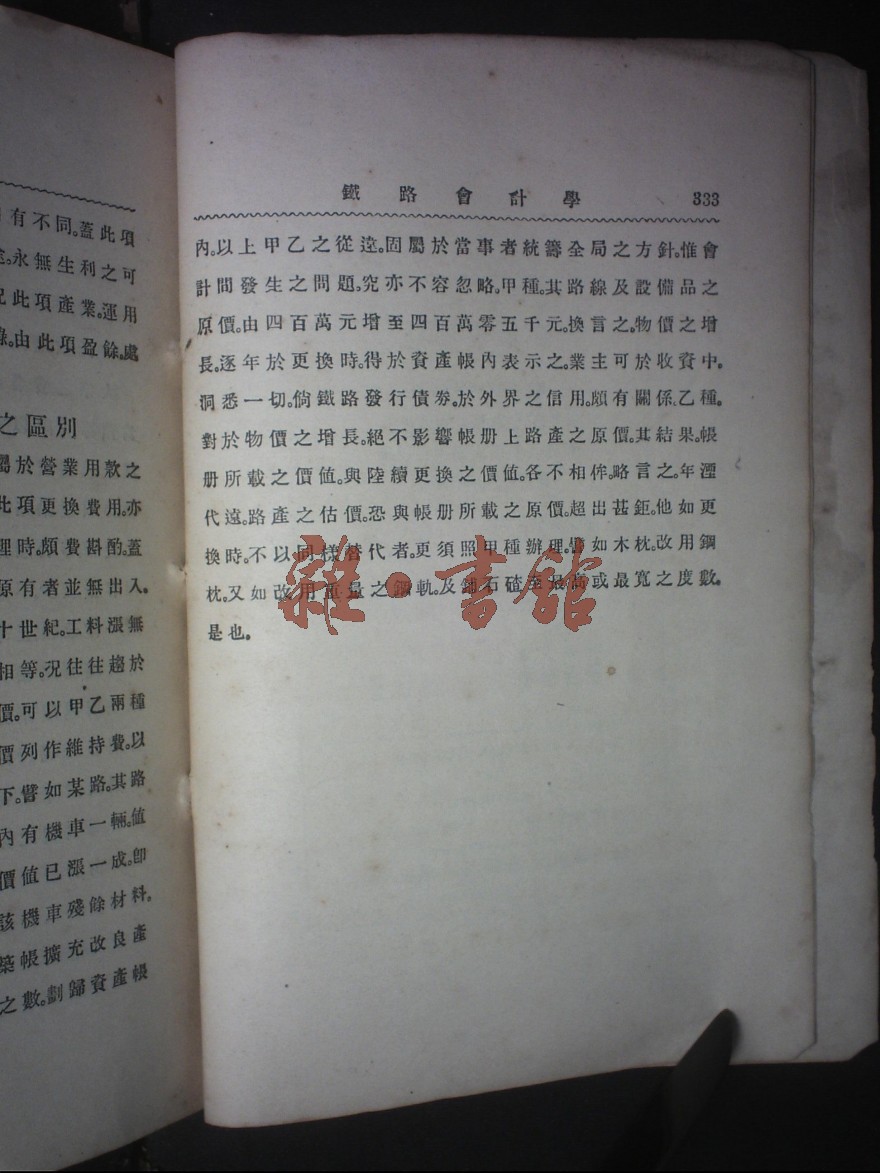 有不同。蓋此項
永無生利之可
此項產業。運用
由此項盈餘。處
之區別
屬於營業用款之
此項更換費用。亦
理時。頗費斟酌。蓋
原有者並無出入。
十世紀。工料漲無
相等。況往往趨於
價。可以甲乙兩種
價列作維持費。以
下。譬如某路。其路
內有機車一輛。值
價值已漲一成。卽
該機車殘餘材料。
築帳擴充改良產
之數。劃歸資產帳
鐵路會計學 333
內。以上甲乙之從違。固屬於當事者統籌全局之方針。惟會
計間發生之問題。究亦不容忽略。甲種。其路線及設備品之
原價。由四百萬元增至四百萬零五千元。換言之。物價之增
長。逐年於更換時。得於資產帳內表示之。業主可於收資中。
洞悉一切。倘鐵路發行債券。於外界之信用。頗有關係。乙種。
對於物價之增長。絕不影響帳册上路產之原價。其結果。帳
册所載之價值。與陸續更換之價值。各不相侔。略言之。年湮
代遠。路產之估價。恐與帳册所載之原價。超出甚鉅。他如更
換時。不以同樣替代者。更須照甲種辦理。譬如木枕。改用鋼
枕。又如改用重量之鋼軌。及鋪石碴至最高或最寬之度數。
是也。
雜·書館